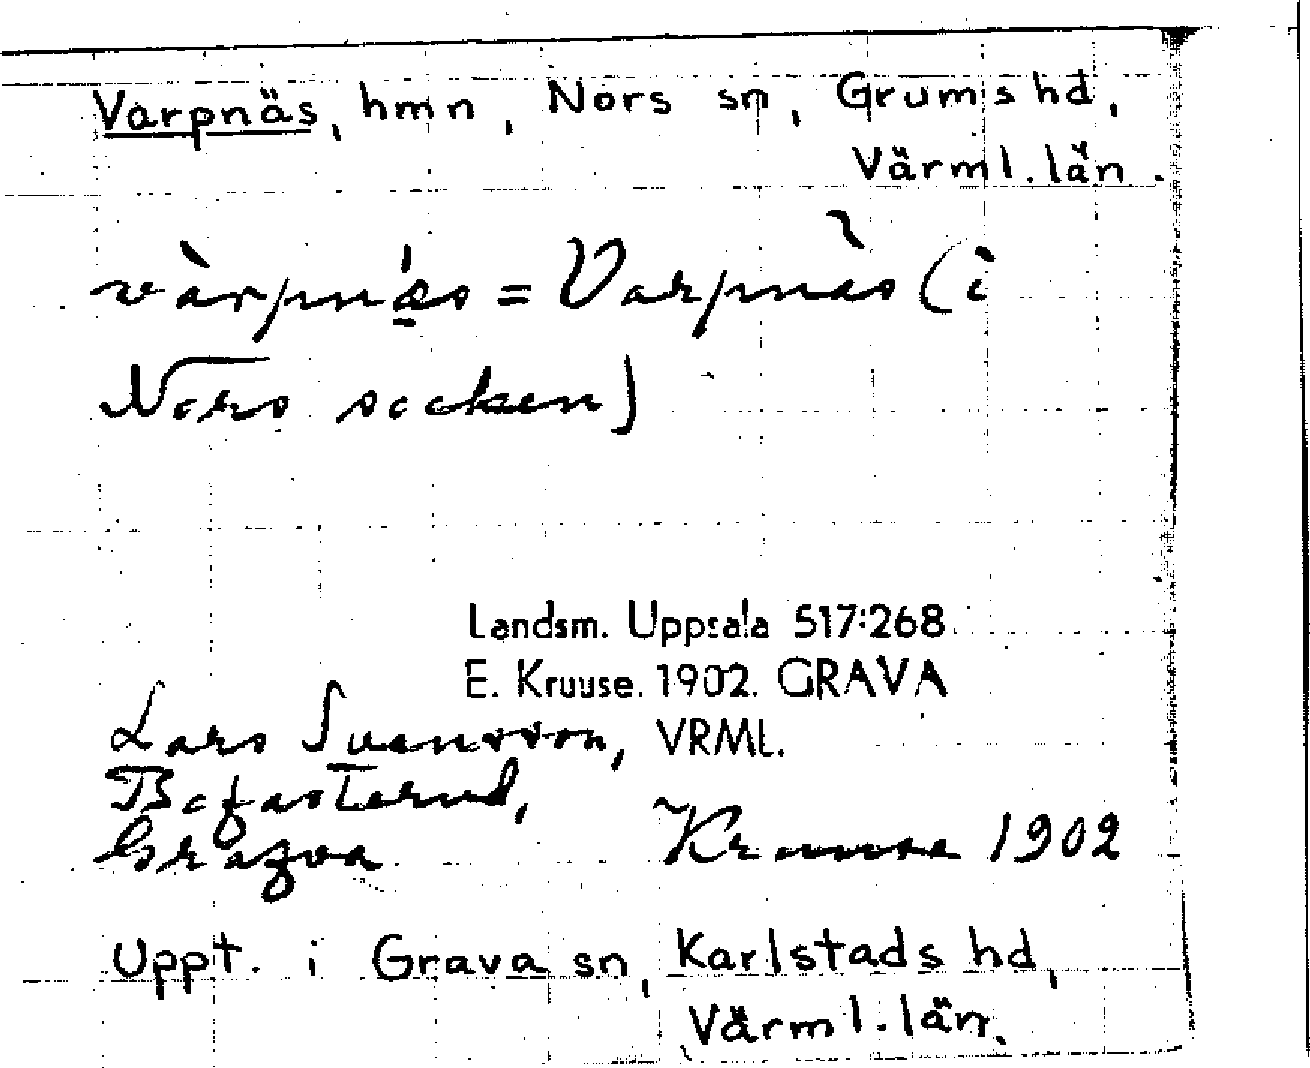 Varpnäs, hmn, Nors sn, Grums hd,
Värml. län.
vàrpnǽs = Varpnäs (i
Nors socken)
Landsm. Uppsala 517:268
E. Kruuse. 1902. GRAVA
Lars Svensson, VRML.
Grava
Kruuse 1902
Uppt. i Grava sn, Karlstads hd,
Värml. län.